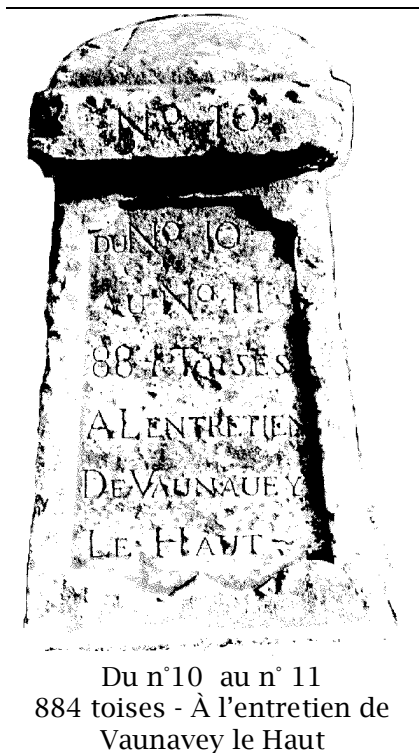 No 10
DU No 10
AU No 11
884 TOISES
A LENTRETIEN
DE VAUNAUEY
LE HAUT
Du n°10 au n° 11
884 toises - À l'entretien de
Vaunavey le Haut